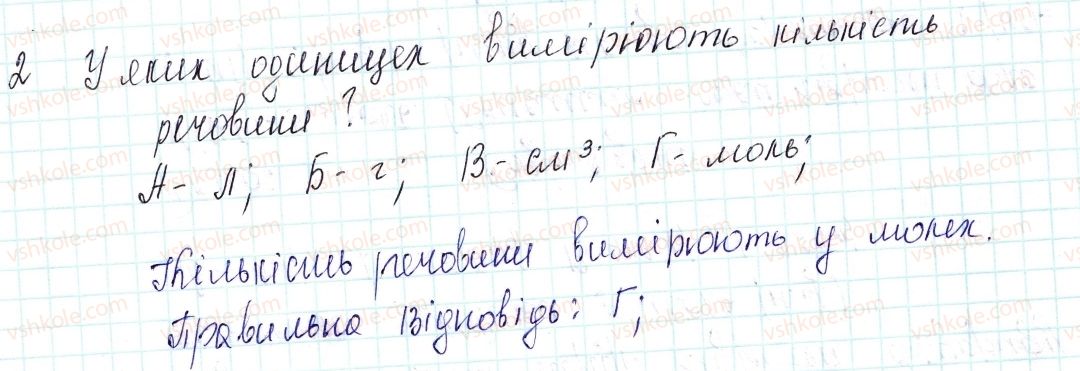 2 У яких одиницех вимірюють кількість
речовини?
А- л; Б- г; В.- см³; Г- моль;
Кількість речовини вимірюють у молех.
Правильна відповідь: Г;